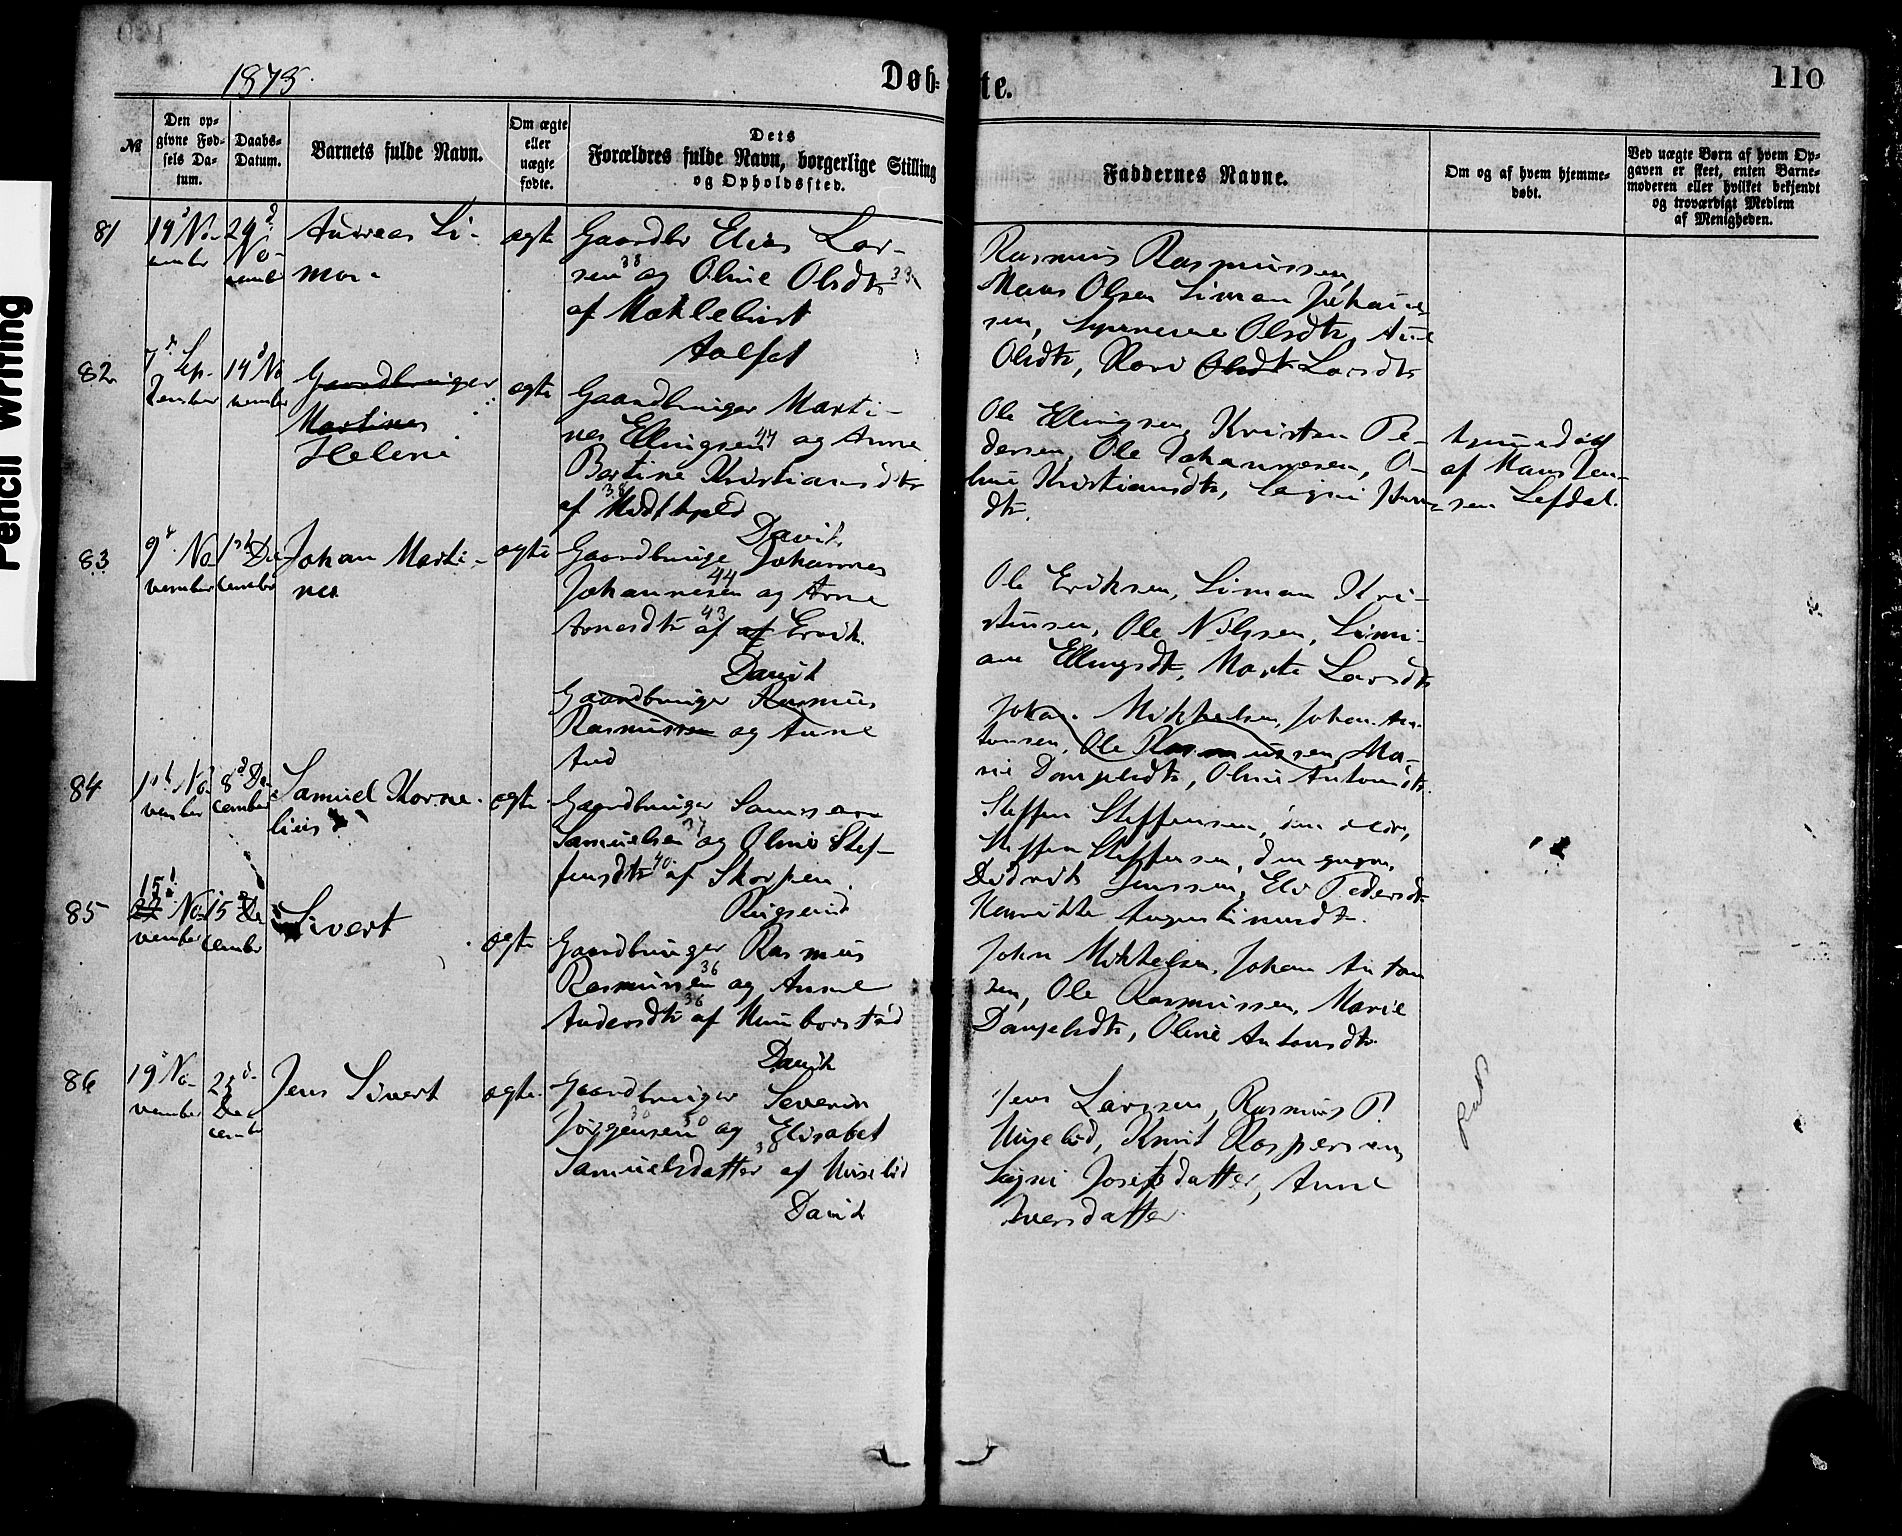 1873.
Døb-
te.
110
Pencil Writing
№
Den op-
givne Fød-
sels Da-
tum.
Daabs-
Datum.
Barnets fulde Navn.
Om ægte
eller
uægte
fødte.
Dets
Forældres fulde Navn, borgerlige Stilling
og Opholdssted.
Faddernes Navne.
Om og af hvem hjemme-
døbt.
Ved uægte Børn af hvem Op-
gaven er skeet, enten Barne-
moderen eller hvilket bekjendt
og troværdigt Medlem
af Menigheden.
81
19 No-
ember
29
No-
vember
Andreas Si-
mon
ægte
Gaardbr Elias Lar-
sen 38 og Oline Olsdtr 33
af Maklebust
Aalfot
Rasmus Rasmussen,
Mons Olsen Simon Johan-
sen, Olsdtr, Ane
Olsdtr, Kari Olsdtr Larsdtr
82
7 Sep-
tember
14 No
vember
Gaardbruger
Martines
Helene
ægte
Gaardbruger Marti-
nes Ellingsen 44 og Anne
Bertine Kristiansdtr
38
af Midthjeld
David
Ole Ellingsen, Kristen Pe-
dersen, Ole Johannesen, O-
line Kristiansdtr, Signi
dtr.
af Mons Jen-
sen Lefdal.
83
9 No
vember
1ste De
cember
Johan Marti-
nes
ægte
Gaardbruger Johannes
Johannesen 44 og Anne
Arnesdtr 43 af af Ervik.
David
Ole Eriksen, Simon Kri-
stensen, Ole Nilssen, Simi-
ane Ellingsdtr, Marte Larsdtr
Gaardbruger Rasmus
Rasmussen og Anne
And
Johan Mikkelsen, Johan An-
tonsen, Ole Rasmussen, Ma-
rie Danjelsdtr, Oline Antonsdtr.
84
1ste No
vember
8 De
cember
Samuel Korne-
lius
ægte
Gaardbruger
Samuelsen 37 og Oline Stef-
fensdtr 40 af Skorpen.
Rugsund
Steffen Steffensen, den eldre,
Steffen Steffensen, den yngre,
Didrik Jenssen, Eli Pedersdtr
Henrikke Augustinusdtr.
85
15
27 No
vember
15 De
cember
Sivert
ægte
Gaardbruger Rasmus
Rasmussen 36 og Anne
Andersdtr 36 af Humborstad
David
John Mikkelsen, Johan Anton
sen, Ole Rasmussen, Marie
Danjelsdtr, Oline Antonsdtr.
86
19 No-
vember
25
De
cember
Jens Sivert
ægte
Gaardbruger Severin
Jørgensen 30 og Elisabet
Samuelsdatter 38 af Husebø
David
Jens Larssen, Rasmus P.
Husebø, Knut Kaspersen,
Signi Josefsdatter, Anne
Iversdatter.